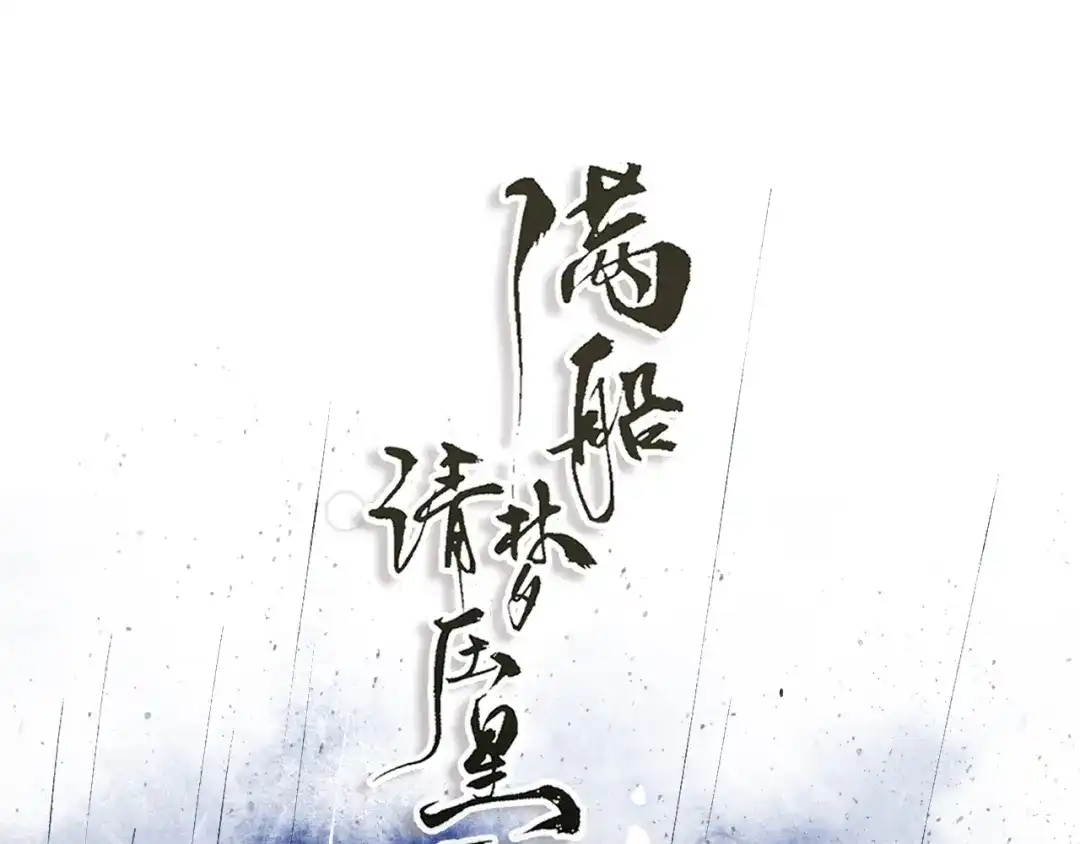 满船
请梦
压星